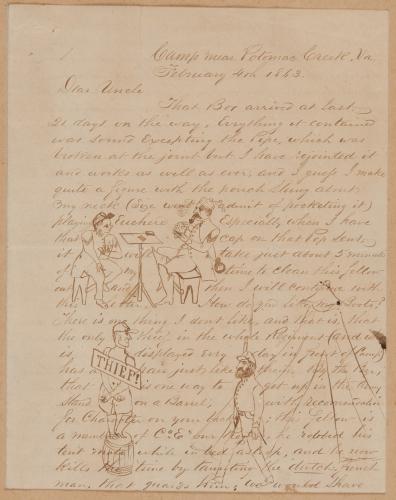 Camp near Potomac Creek, Va.
February 4th 1863.
Dear Uncle
That Box arrived at last,
21 days on the way, Everything it contained
was sound Excepting the Pipe, which was
broken at the joint but I have rejointed it
and works as well as ever, and I guess I make
quite a figure with the pouch slung about
my neck (Size wont admit of pocketing it)
playing Euchere Especially when I have
that cap on that Pop sent.
it take just about 5 minutes
of my time to clean this fellow
out and then I will continue with
this How do you letter
There is one thing I dont like, and that is, that
the only thief in the whole Regiment (and
is displayed every day in front of Camp
has a just like
that is one way to get up in the Army
Stand on a Barrel, with recommendation
for Character on your back, this fellow is
a member of Co "E" our he robbed his
tent mate while in bed asleep, and he now
kills time by the dutch, french
man, that guards him, would have
THIEF!